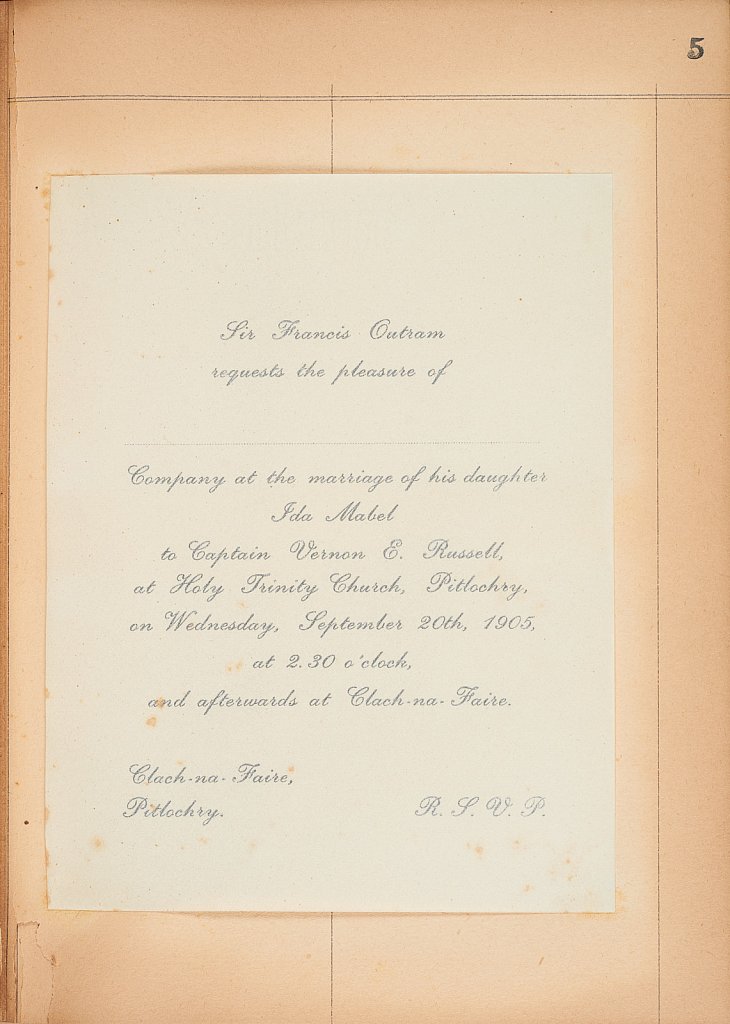 5
Sir Francis Outram
requests the pleasure of
Company at the marriage of his daughter
Ida Mabel
to Captain Vernon E. Russell,
at Holy Trinity Church, Pitlochry,
on Wednesday, September 20th, 1905,
at 2.30 o'clock,
and afterwards at Clach-na-Faire.
Clach-na-Faire,
Pitlochry.
R. S. V. P.